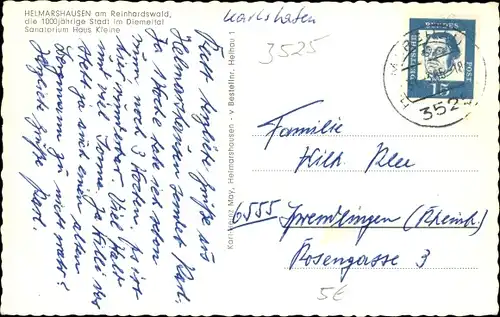 HELMARSHAUSEN am Reinhardswald,
die 1000jährige Stadt im Diemeltal
Sanatorium Haus Kleine
Karlshafen
3525
DEUTSCHE BUNDESPOST
15
352
Recht herzliche Grüße aus
Helmarshausen sendet Karl.
1 Woche habe ich schon
nun noch 3 Wochen. Es ist
hier wunderbar. Viel Wald
und viel Sonne. Ja Willi
ich einen alten
Bergmann
Herzliche Grüße
Karl.
Karl-Heinz May, Helmarshausen - v Bestellnr. Helmau 1
Familie
Wilh. Klee
6555 Sprendlingen (Rheinh.)
Rosengasse 3
5€